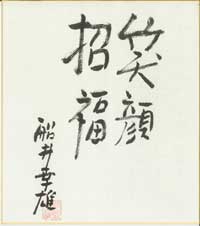 笑顔
招福
船井幸雄